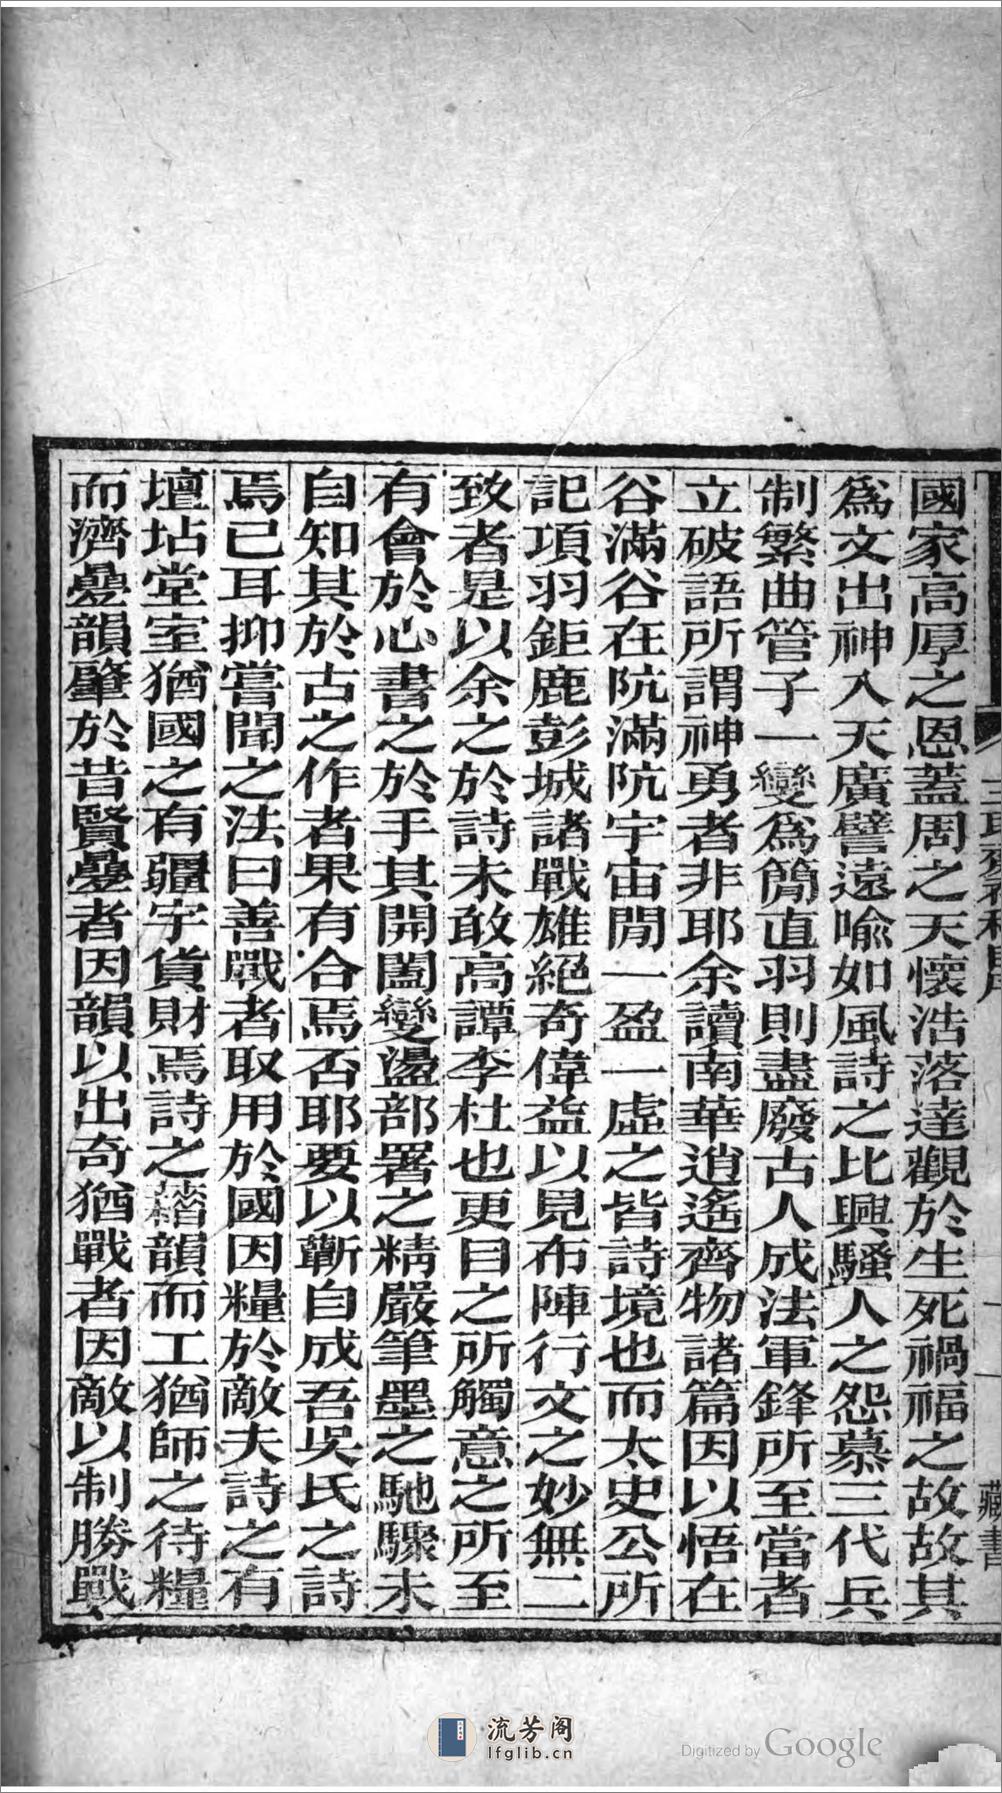 國家高厚之恩蓋周之天懷浩落達觀於生死禍福之故故其
爲文出神入天廣譬遠喻如風詩之比興騷人之怨慕三代兵
制繁曲管子一變爲簡直羽則盡廢古人成法軍鋒所至當者
立破語所謂神勇者非耶余讀南華逍遙齊物諸篇因以悟在
谷滿谷在阬滿阬宇宙閒一盈一虛之皆詩境也而太史公所
記項羽鉅鹿彭城諸戰雄絕奇偉益以見布陣行文之妙無二
致者是以余之於詩未敢高譚李杜也更目之所觸意之所至
有會於心書之於手其開闔變盪部署之精嚴筆墨之馳驟未
自知其於古之作者果有合焉否耶要以蘄自成吾吳氏之詩
焉已耳抑嘗聞之法曰善戰者取用於國因糧於敵夫詩之有
壇坫堂室猶國之有疆宇貨財焉詩之藉韻而工猶師之待糧
而濟疊韻肇於昔賢疊者因韻以出奇猶戰者因敵以制勝戰
藏書
流芳阁
lfglib.cn
Digitized by Google